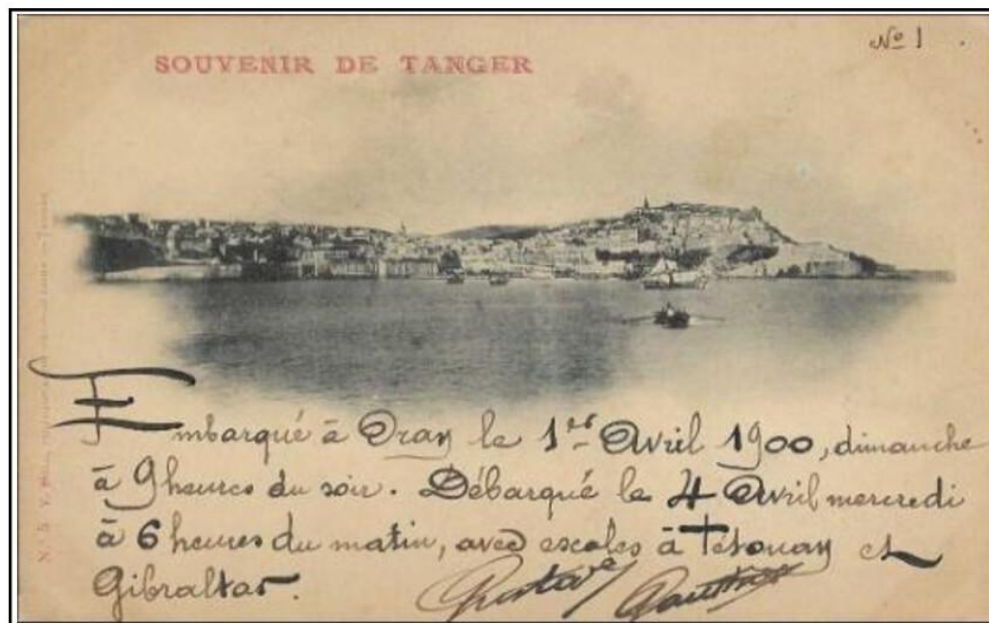 Nº 1 .
SOUVENIR DE TANGER
Embarqué à Oran le 1er Avril 1900, dimanche
à 9 heures du soir. Débarqué le 4 Avril mercredi
à 6 heures du matin, avec escales à Tétouan et
Gibraltar.
Gustave
N. 5